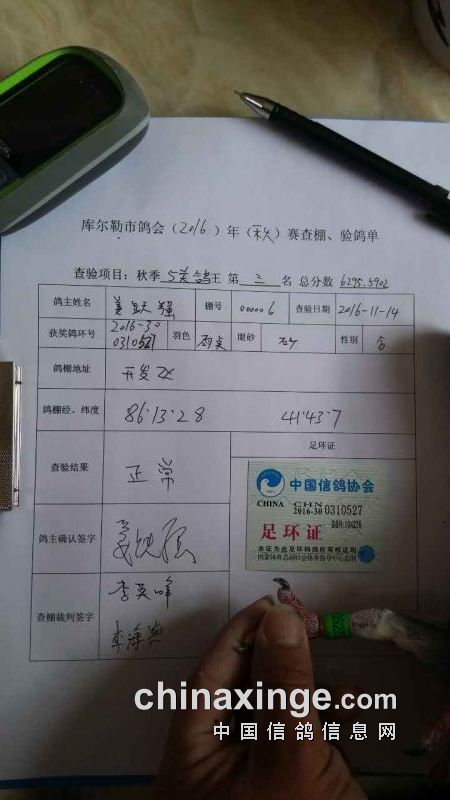 库尔勒市鸽会（2016）年（秋）赛查棚、验鸽单
查验项目：秋季 5关鸽王 第 三 名 总分数 6295.5902
鸽主姓名 姜跃强 棚号 000006 查验日期 2016-11-14
获奖鸽环号 2016-30 0310527 羽色 眼砂 砂 性别
鸽棚地址 开发区
鸽棚经、纬度 86·13·28 41·43·7
查验结果 正常 足环证
中国信鸽协会
CHINA CHN
2016-30 0310527
足环证
本证为此足环鸽拥所有权证明
鸽主确认签字 姜跃强
查棚裁判签字 李英峰
李海
chinaxinge.com
中国信鸽信息网